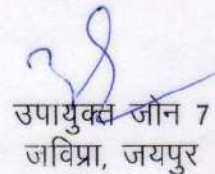 उपायुक्त जोन 7
जविप्रा, जयपुर